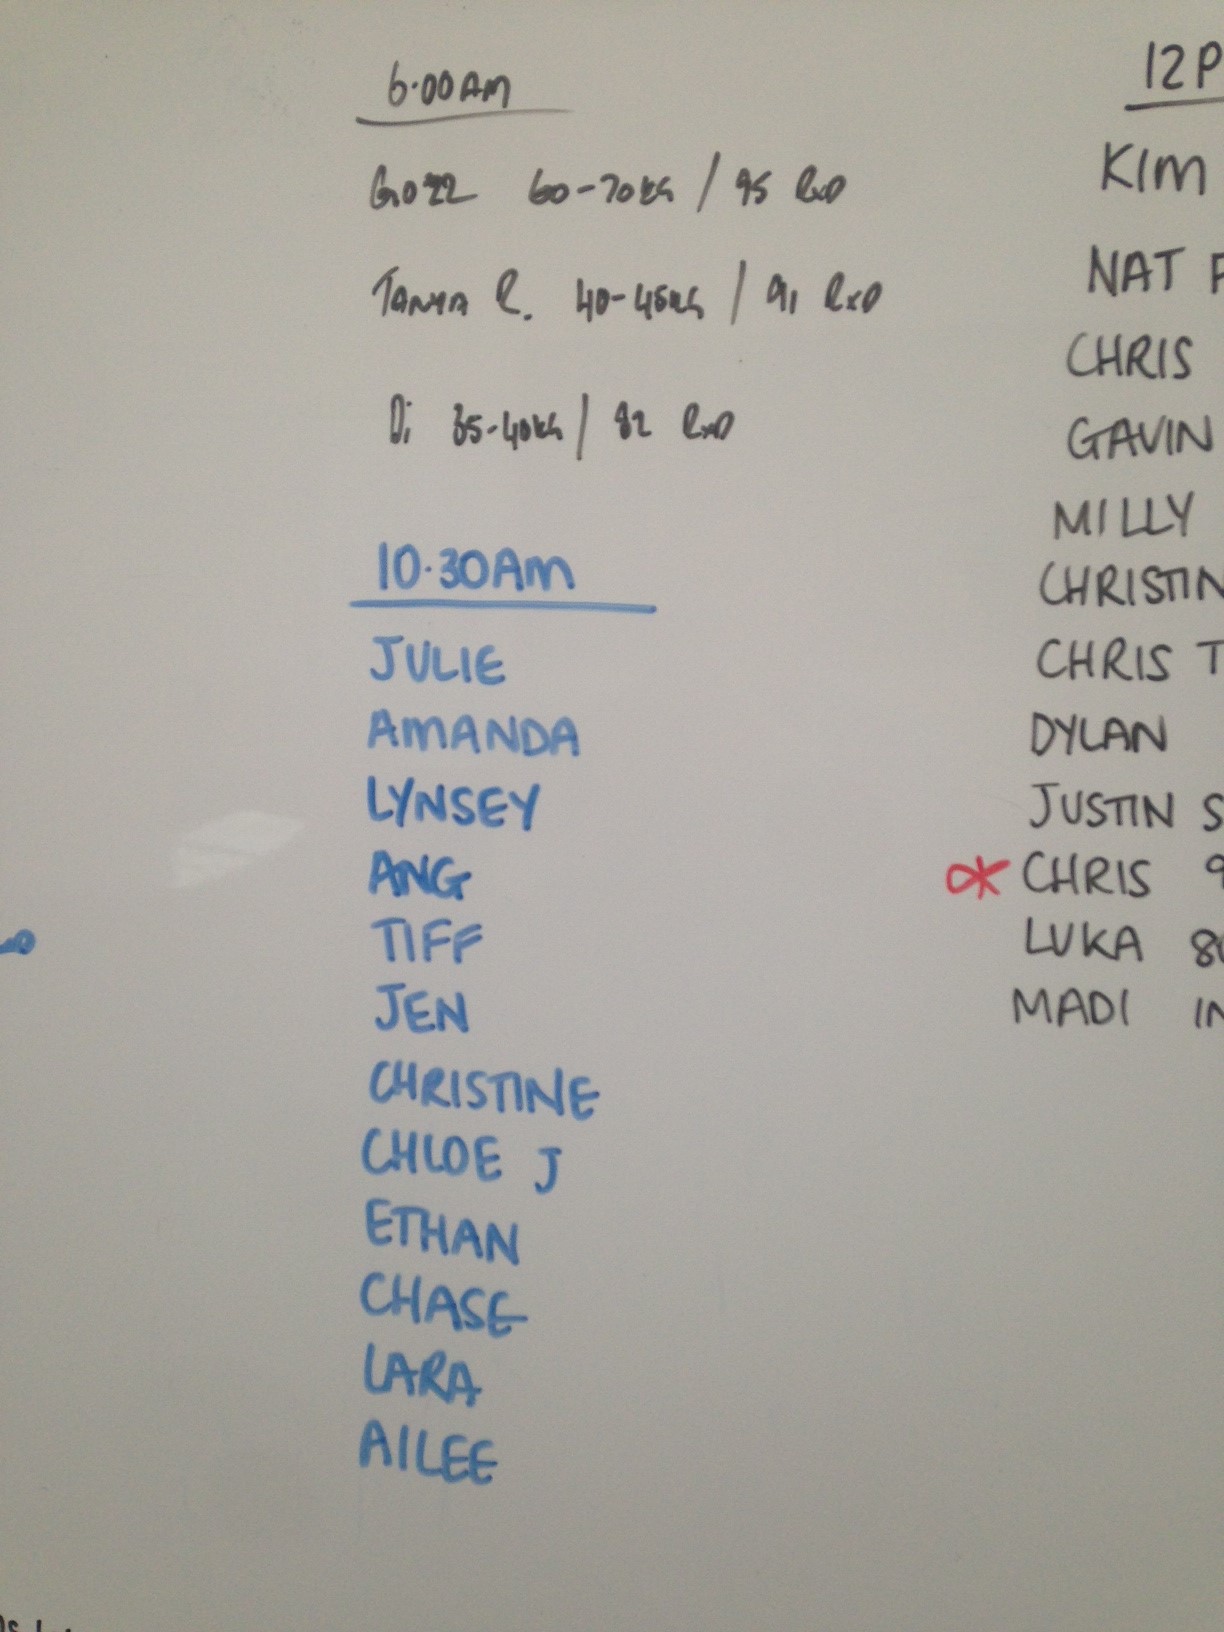 6.00AM
GOZZ 60-70KG / 95 RxD
TANYA R. 40-45KG / 91 RxD
Di 35-40KG / 82 RxD
10.30AM
JULIE
AMANDA
LYNSEY
ANG
TIFF
JEN
CHRISTINE
CHLOE J
ETHAN
CHASE
LARA
AILEE
12P
KIM
NAT
CHRIS
GAVIN
MILLY
CHRISTIN
CHRIS T
DYLAN
JUSTIN S
* CHRIS 9
LUKA 80
MADI IN